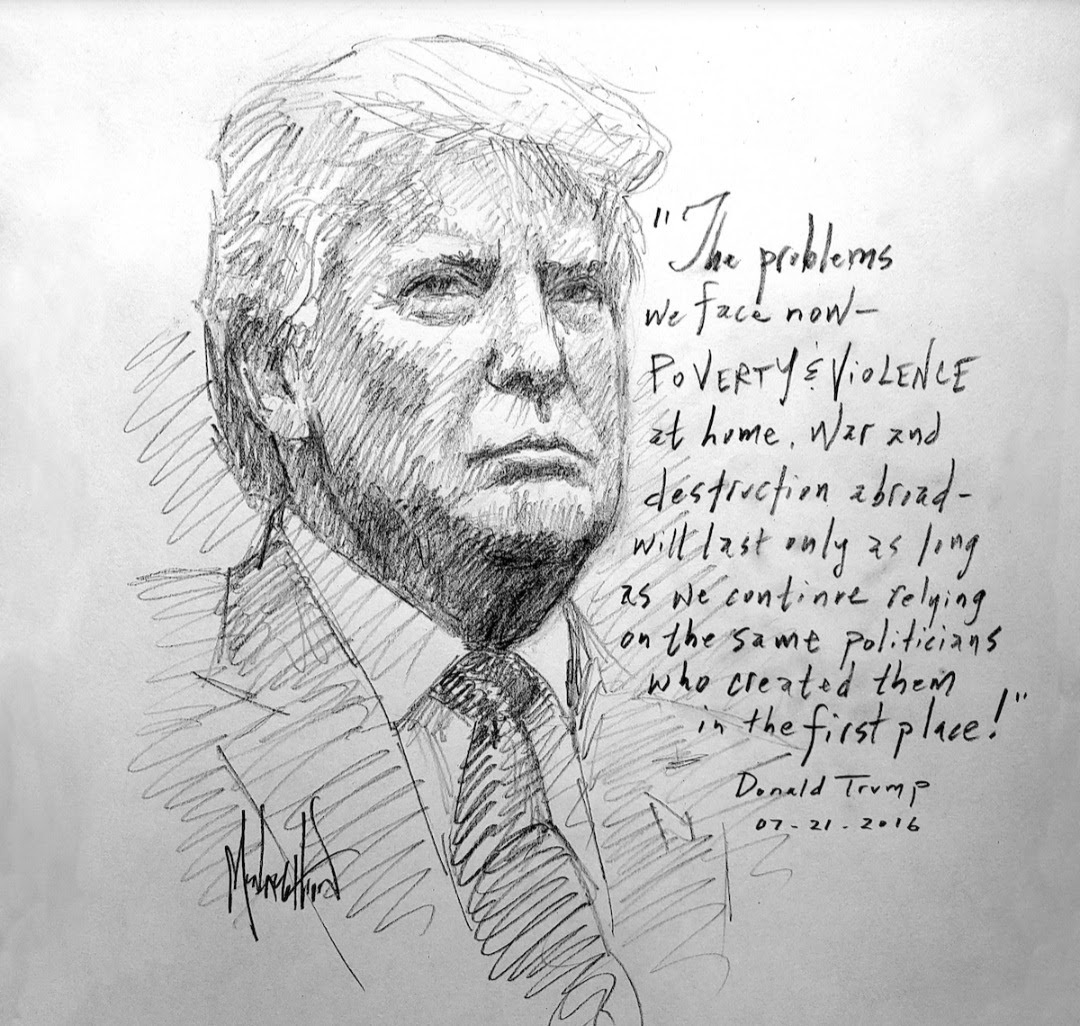 "The problems
we face now—
POVERTY & VIOLENCE
at home, War and
destruction abroad-
will last only as long
as we continue relying
on the same politicians
who created them
in the first place!"
Donald Trump
07-21-2016